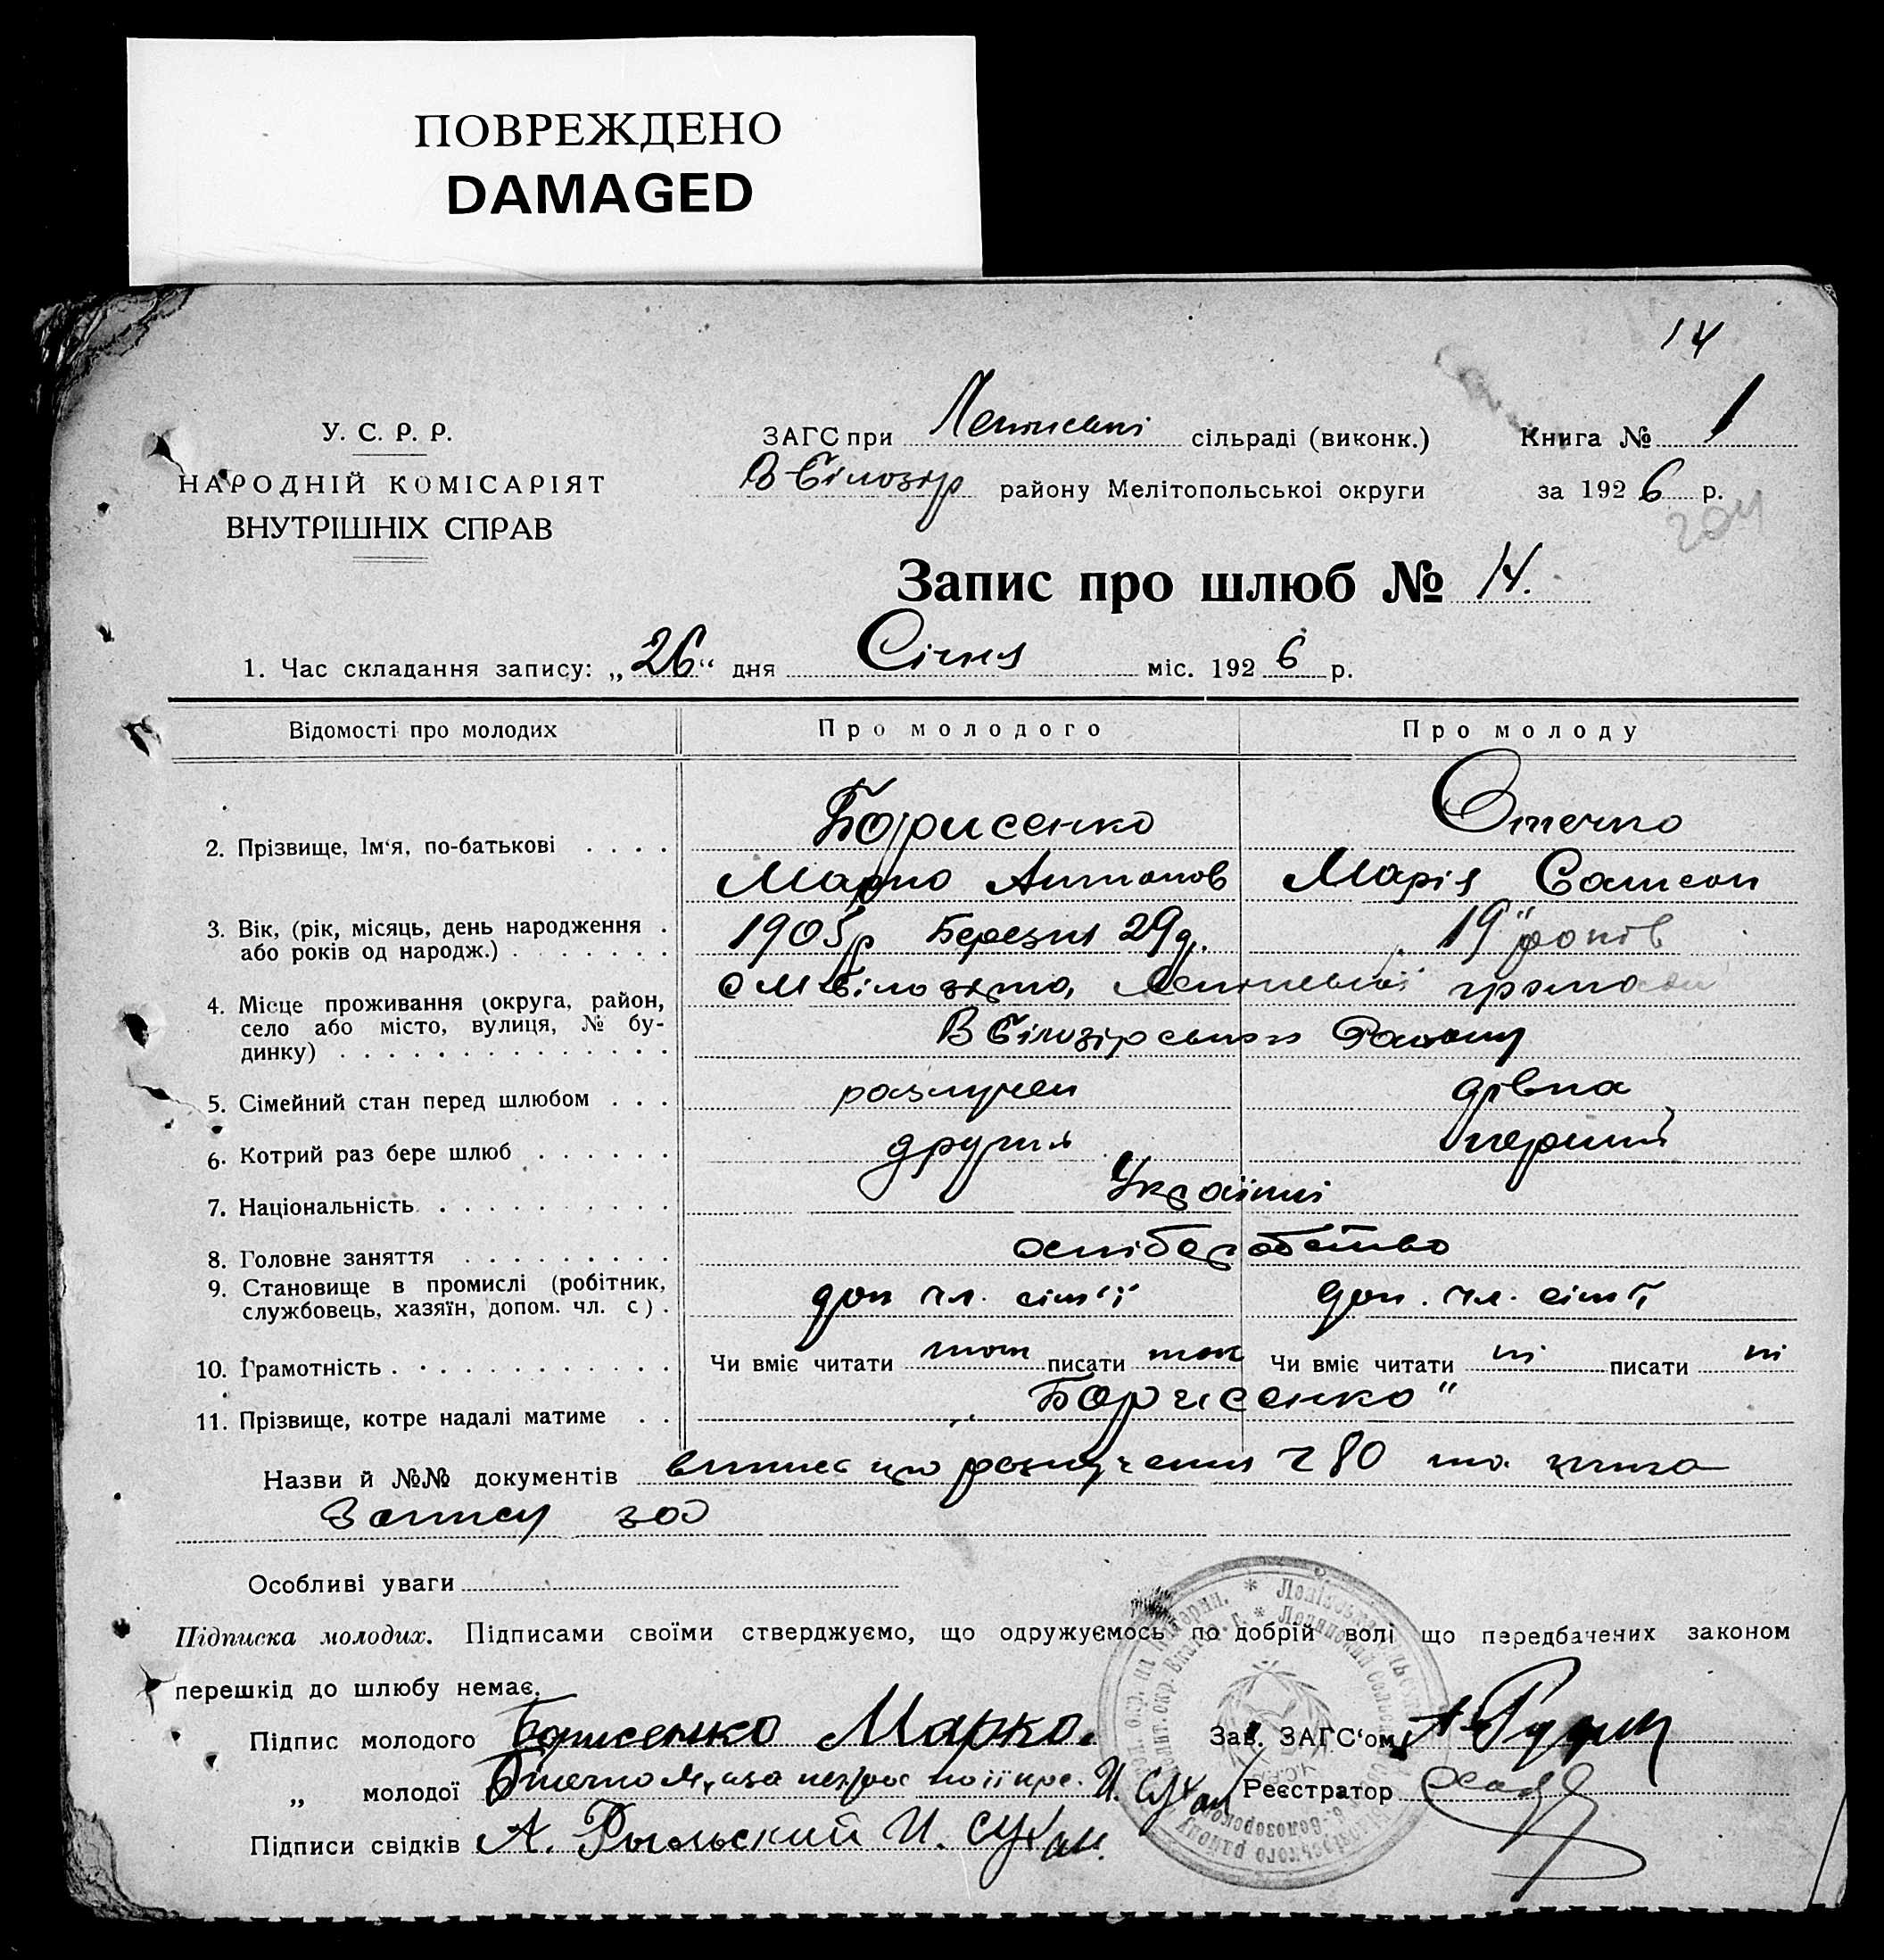 ПОВРЕЖДЕНО
DAMAGED
14
У. С. Р. Р.
НАРОДНІЙ КОМІСАРІЯТ
ВНУТРІШНІХ СПРАВ
ЗАГС при сільраді (виконк.) Книга № 1
В Білозір району Мелітопольської округи за 1926 р.
204
Запис про шлюб № 14.
1. Час складання запису: „26“ дня Січня міс. 1926 р.
Відомості про молодих Про молодого Про молоду
Борисенко Отечко
2. Прізвище, Ім‘я, по-батькові
Марко Антонов Марія Самсон
3. Вік, (рік, місяць, день народження 1905р Березня 29 д. 19 років
або років од народж.)
4. Місце проживання (округа, район,
село або місто, вулиця, № бу-
динку) В Білозірського Району
5. Сімейний стан перед шлюбом разлучен дівка
6. Котрий раз бере шлюб другий перший
7. Національність Українці
8. Головне заняття
9. Становище в промислі (робітник, доп чл. сім'ї доп. чл. сім'ї
службовець, хазяїн, допом. чл. с).
10. Грамотність Чи вміє читати так писати так Чи вміє читати ні писати ні
11. Прізвище, котре надалі матиме „Борисенко"
Назви й №№ документів 280 та книга
Запису
Особливі уваги
Підписка молодих. Підписами своїми стверджуємо, що одружуємось по добрій волі що передбачених законом
перешкід до шлюбу немає.
Підпис молодого Борисенко Марко. Зав. ЗАГС‘ом
„ молодої И. Сухан Реєстратор
Підписи свідків А. Рыльский И. Сухан.